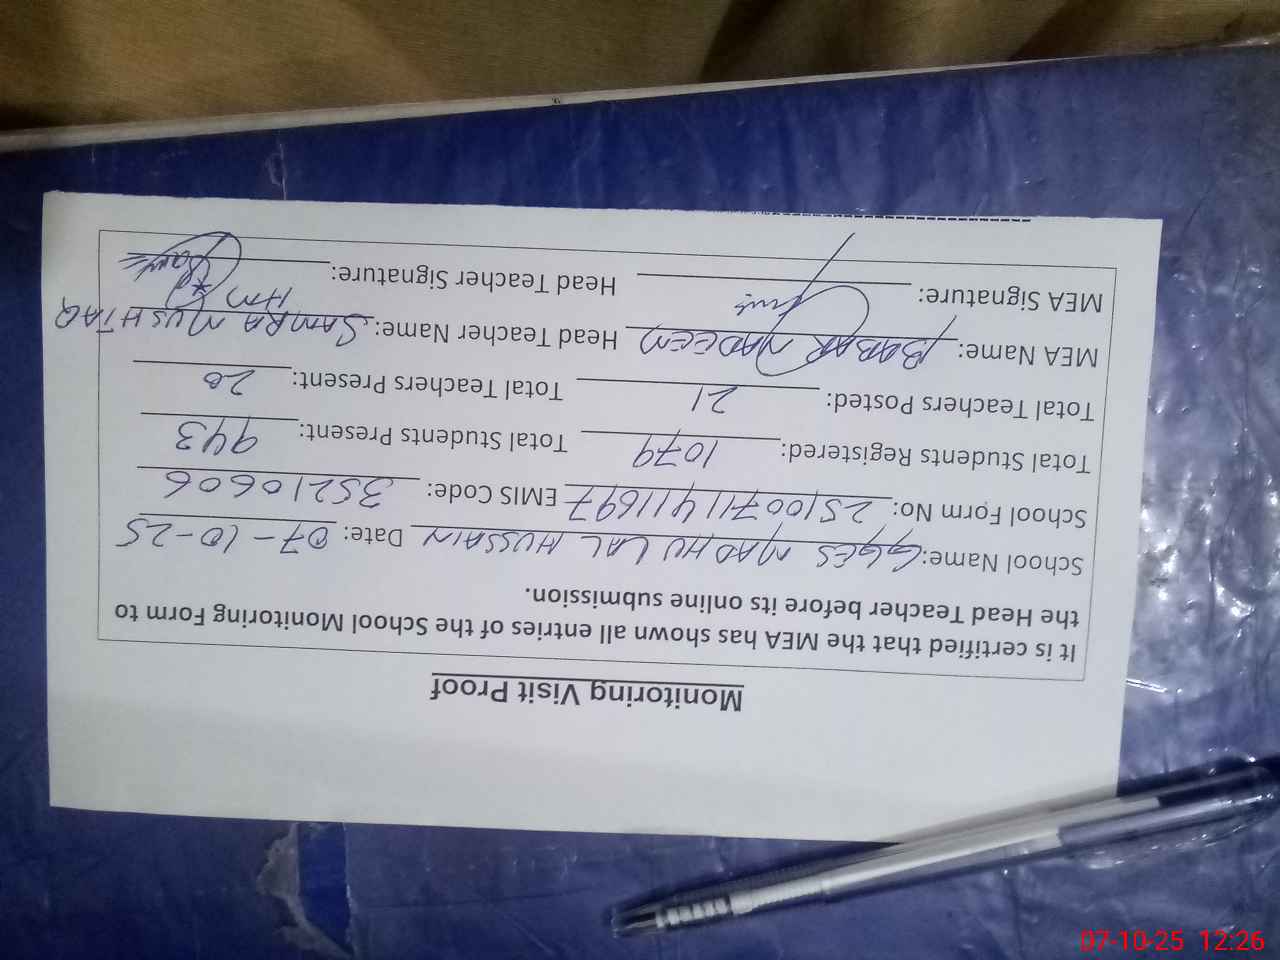 Monitoring Visit Proof
It is certified that the MEA has shown all entries of the School Monitoring Form to
the Head Teacher before its online submission.
School Name: GGES MADHU LAL HUSSAIN Date: 07-10-25
School Form No: 25100711411697 EMIS Code: 35210606
Total Students Registered: 1079 Total Students Present: 943
Total Teachers Posted: 21 Total Teachers Present: 20
MEA Name: BABAR NADEEM Head Teacher Name: SAMRA MUSHTAQ
HM
MEA Signature: Head Teacher Signature:
07-10-25 12:26